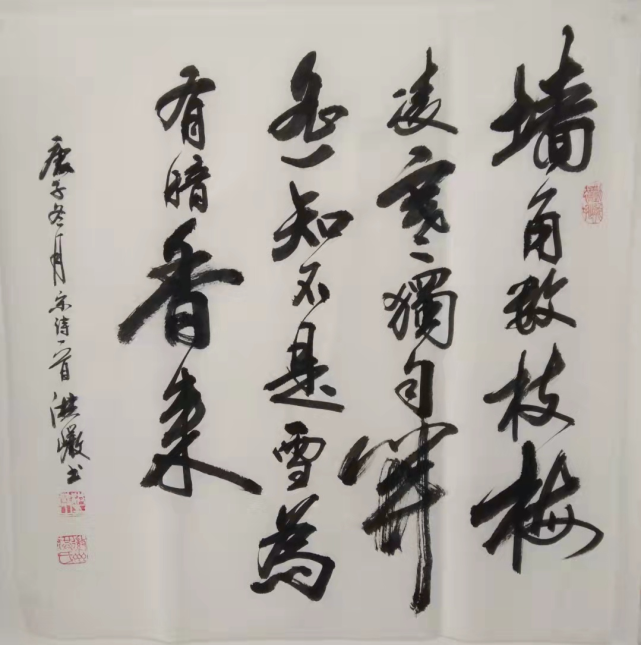 墙角数枝梅
凌寒獨自開
遥知不是雪為
有暗香来
庚子冬月宋诗一首书